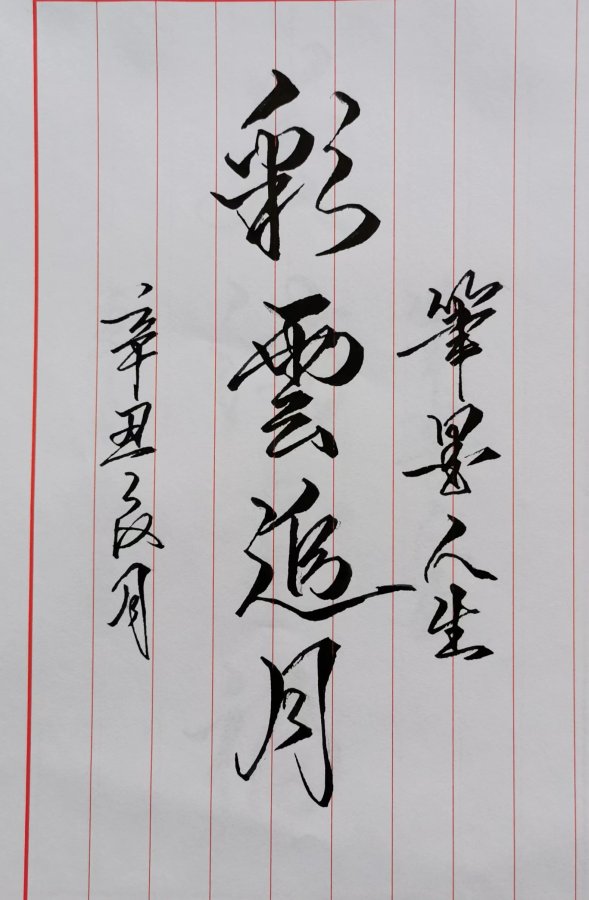 筆墨人生
彩雲追月
辛丑月